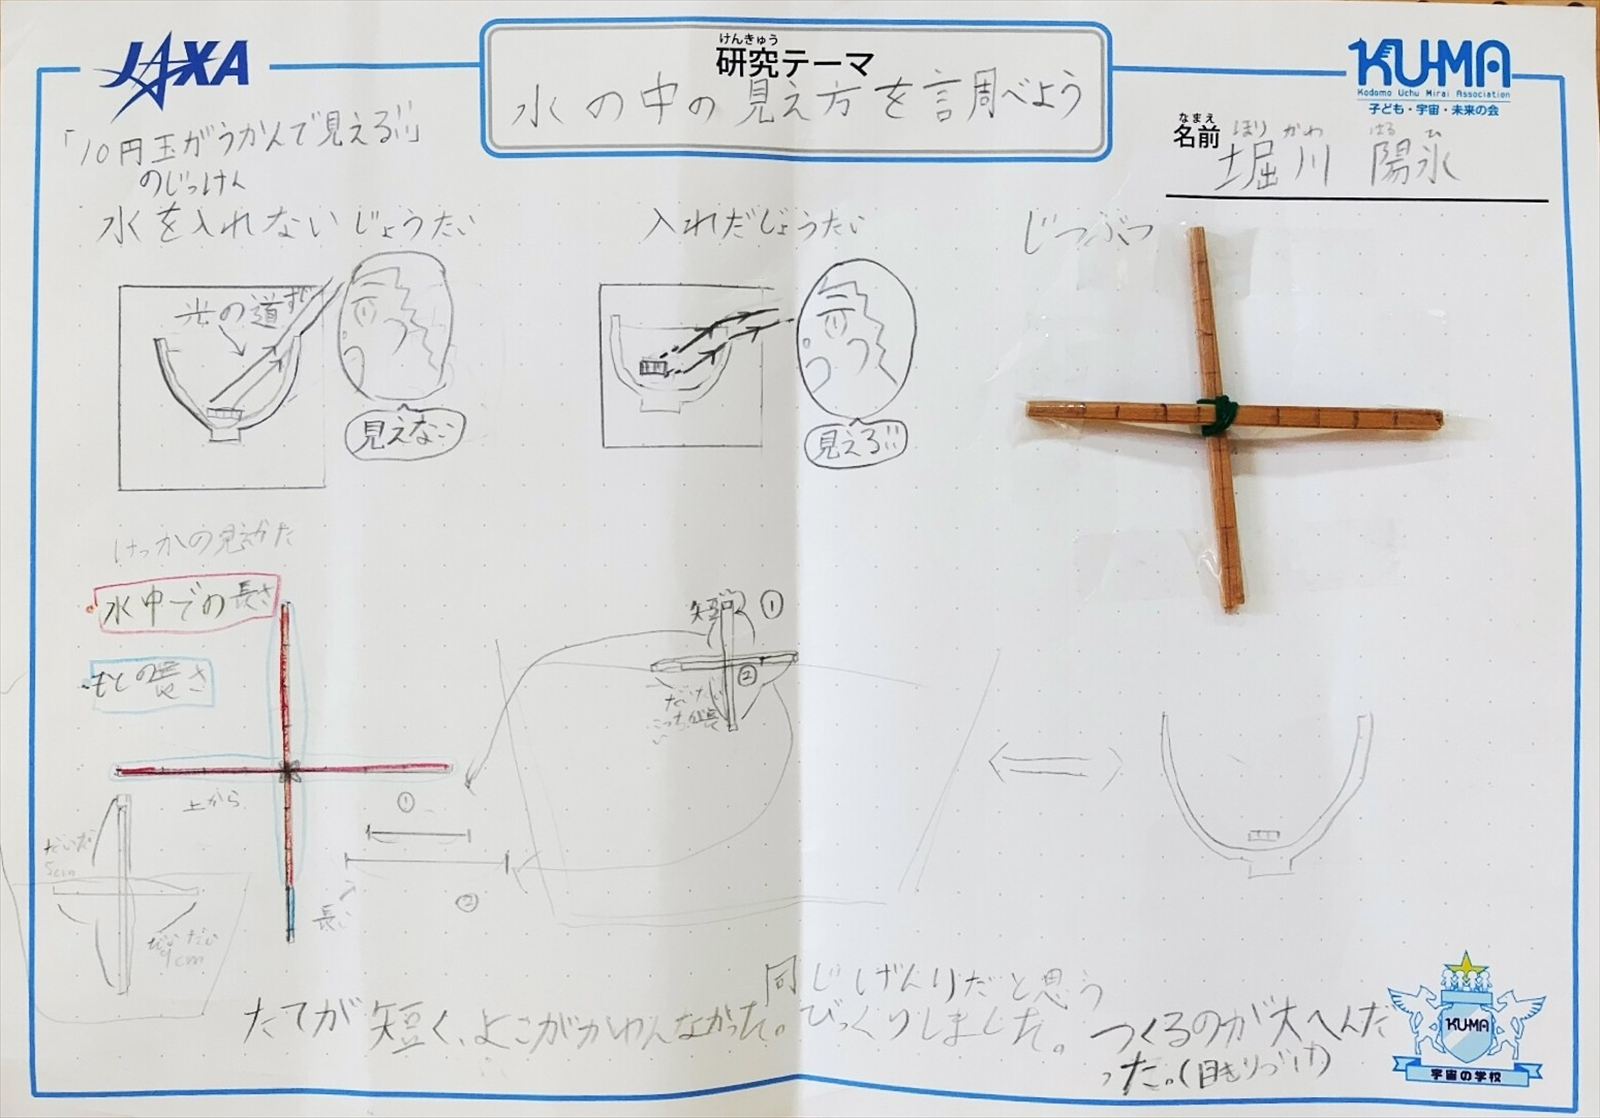 JAXA
けんきゅう
研究テーマ
水の中の見え方を調べよう
KU-MA
Kodomo Uchu Mirai Association
子ども・宇宙・未来の会
なまえ
名前
ほり かわ はる ひ
堀川 陽氷
「10円玉がうかんで見える!!」
のじっけん
水を入れないじょうたい
入れだじょうたい
じつぶつ
光の道すじ
見えない
見える!!
けっかの見えかた
・水中での長さ
・もとの長さ
上から
①
②
長い
短い ①
②
だいたい
こっちが長
い
だいだい
5cm
9cm
同じげんりだと思う
たてが短く、よこがかわんなかった。びっくりしました。つくるのが大へんだ
った。(目もりづけ)
KU-MA
宇宙の学校